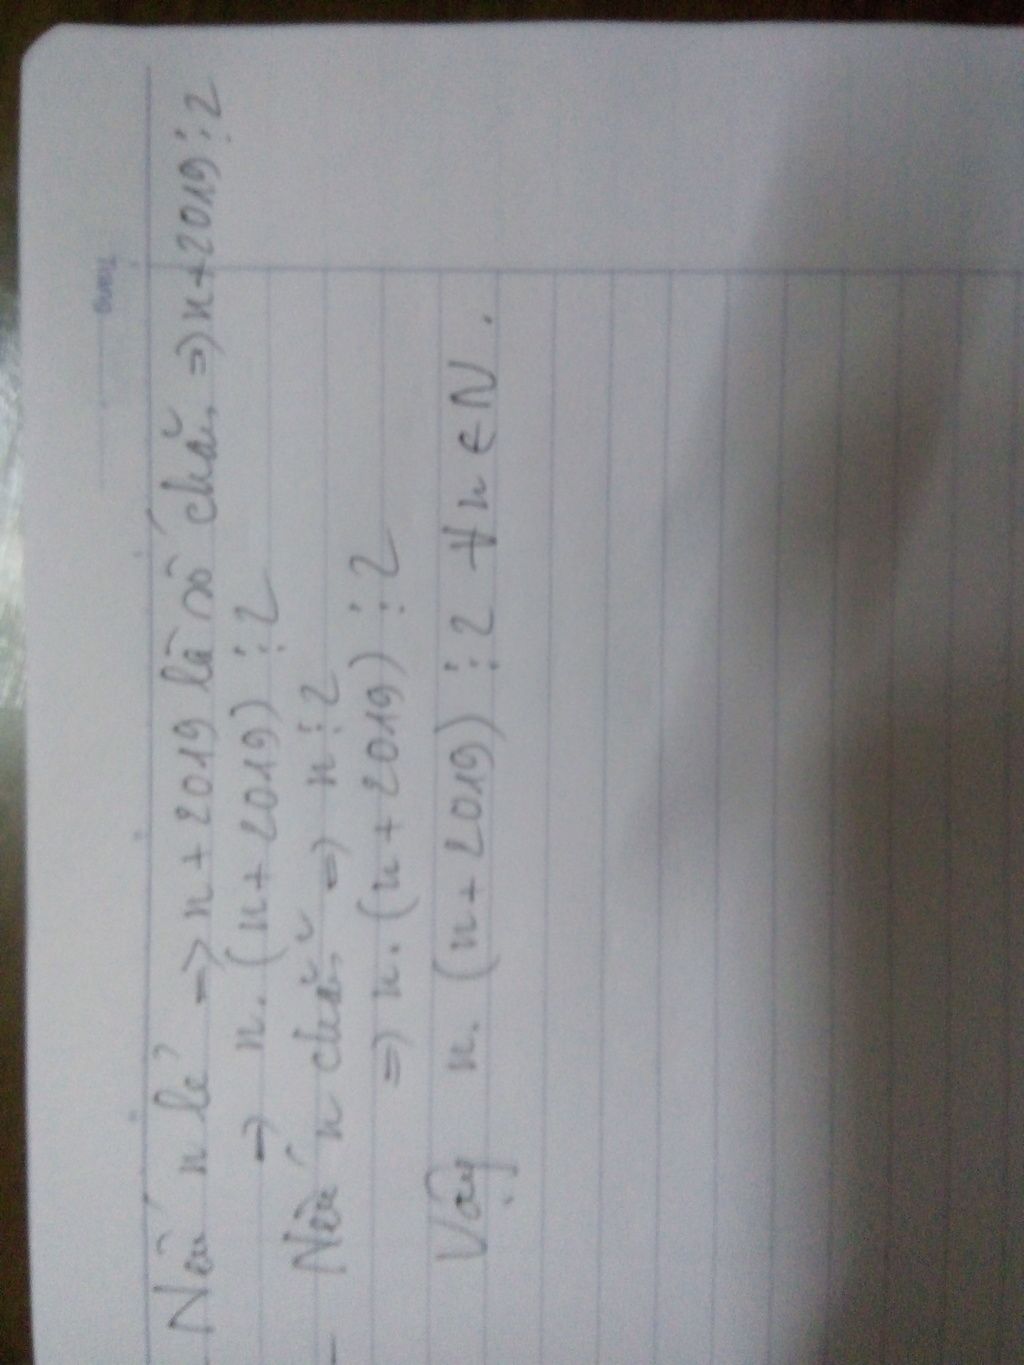 Trang
Nếu n lẻ => n + 2019 là số chẵn => n + 2019 ⋮ 2
=> n . (n + 2019) ⋮ 2
- Nếu n chẵn => n ⋮ 2
=> n . (n + 2019) ⋮ 2
Vậy n . (n + 2019) ⋮ 2 ∀ n ∈ N .